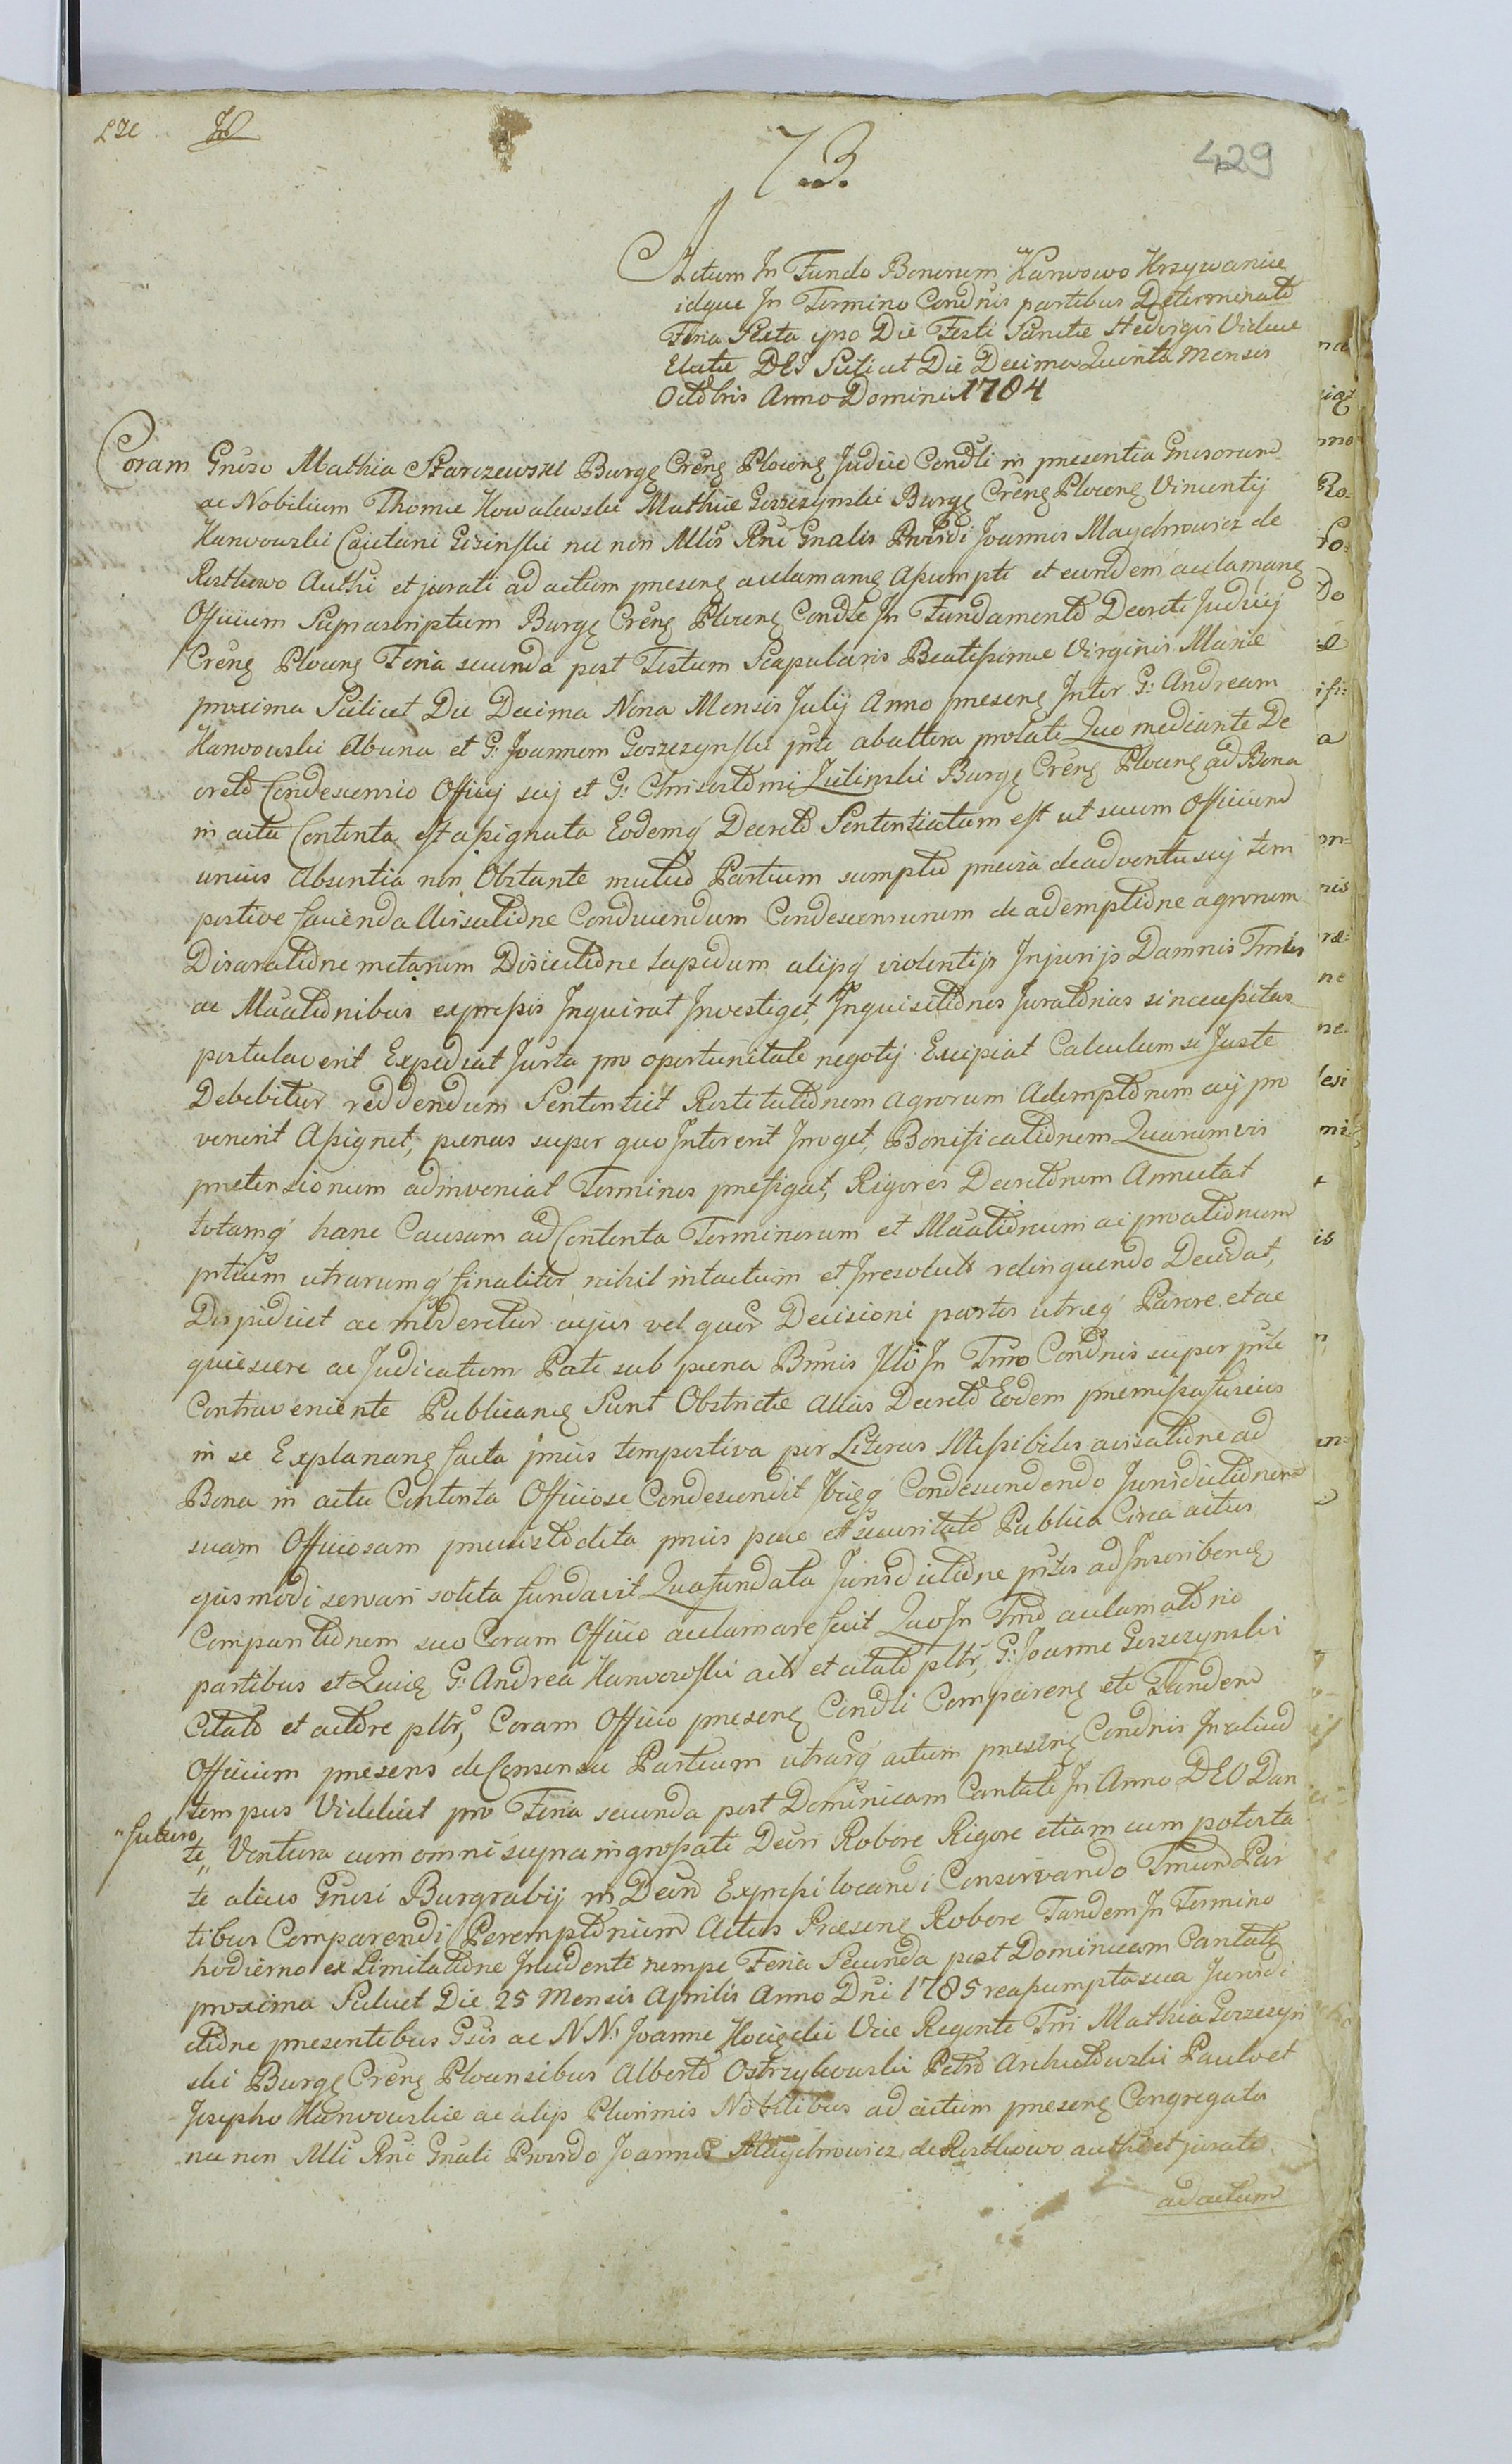 73.
429
Actum In Fundo Bonorum Karwowo Krzywanice
idque In Termino Condnis partibus Determinato
Feria Sexta ipso Die Festi Sanctae Hedvigis Viduae
Electae DEI Scilicet Die Decima Quinta Mensis
Octobris Anno Domini 1784
Coram Gnoso Mathia Starczewski Burgę Creng Ploceng Judice Condli in presentia Gnosorum
ac Nobilium Thomae Kowalewski Mathiae Gorzezynski Burgę Creng Ploceng Vincentij
Karwowski Cajetani nec non Mlis Rni Gnalis Providi Joannis Maychrowicz de
Rostkowo Authi et jurati ad actum preseng acclamang Assumpti et eundem acclamang
Officium Suprascriptum Burgę Creng Ploceng Condse In Fundamento Decreti Judicij
Creng Ploceng Feria secunda post Festum Scapularis Beatissimae Virginis Mariae
proxima Scilicet Die Decima Nona Mensis Julij Anno preseng Inter G: Andream
Karwowski ab una et G: Joannem Gorzezynski pste ab altera prolati Quo mediante De
creto Condescensio Officij sui et G: Chrisostomi Zielinski Burgę Creng Ploceng ad Bona
in actu Contenta est assignata Eodemq Decreto Sententiatum est ut suum Officium
unius Absentia non Obstante mutuo Partium sumptu previa de adventu sui tem
pestive facienda Avisatione Conducendum Condescensurum de ademptione agrorum
Disaratione metarum Disiectione Lapidum alijsq violentijs Injurijs Damnis Tmis
ac Maationibus expressis Inquirat Investiget, Inquisitiones Juratorias si necessitas
postulaverit Expediat Jurta pro oportunitate negotij Excipiat Calculum si Juste
Debebitur reddendum Sententiet Restitutionem agrorum Ademptorum cuj pro
venerit Assignet, penas super quo Intererit Irroget, Bonificationem Quarumvis
pretensionum adinveniat Terminos prefigat, Rigores Decretorum Annectat
totamq hanc Causam ad Contenta Terminorum et Maationum ac proationum
ptium utrarumq finaliter nihil intactum et Iresolutum relinquendo Decidat,
Disjudicet ac cujus vel quor Decisioni partes utraeq Parere et ac
quiescere ac Judicatum Pati sub paena Bannis In Tmo Condnis super pste
Contraveniente Publicang Sunt Obstrictae Alias Decreto Eodem premissa fusius
in se Explanang facta prius tempestiva per Literas Missibiles avisatione ad
Bona in actu Contenta Officiose Condescendit Ibiq Condescendendo Jurisdictionem
suam Officiosam prius pace et securitate Publica Circa actus
ejusmodi servari solita fundavit Qua fundata Jurisdictione ptes ad Inscribeng
Comparitionem suo Coram Officio acclamare fecit Quo In Tmo acclamato
partibus et G: Andrea Karwowski acto et citato pltr, G: Joanne Gorzezynski
Citato et actore pltr, Coram Officio preseng Condli Compareng etc Tandem
Officium presens de Consensu Partium utrarq actum preseng Condnis In aliud
tempus Videlicet pro Feria secunda post Dominicam Cantate In Anno DEO Dan
"futuro
te" Ventura cum omni supra ingrossati Decri Robore Rigore etiam cum potesta
te alius Gnosi Burgrabij in Decro Expressi locandi Conservando Tmum Par
tibus Comparendi Peremptorium Actus Praeseng Robore Tandem In Termino
hodierno ex Limitatione Incidenti nempe Feria Secunda post Dominicam Cantate
proxima Scilicet Die 25 Mensis Aprilis Anno Dni 1785 reasumpta sua Jurisdi
ctione presentibus Gsis ac N N: Joanne Vice Regente Mathia Gorzezyn
ski Burgę Creng Plocensibus Alberto Ostrzykowski Petro Paulo et
Josepho Karwowskie ac alijs Plurimis Nobilibus ad actum preseng Congregatis
nec non Mli Rni Gnali Provido Joannes Maychrowicz de Rostkowo autho et jurato
ad actum